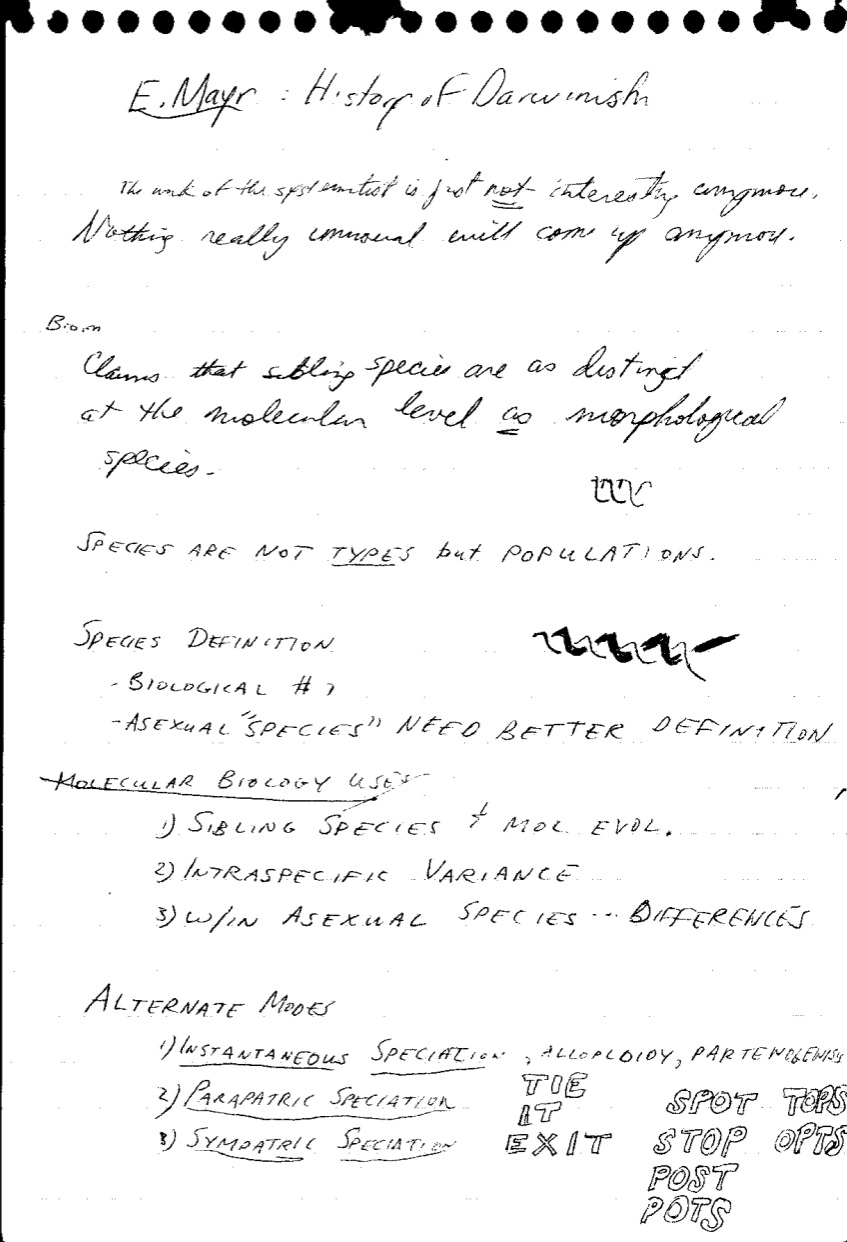 E. Mayr : History of Darwinism
The work of the systematist is just not interesting anymore.
Nothing really unusual will come up anymore.
Claims that sibling species are as distinct
at the molecular level as morphological
species.
SPECIES ARE NOT TYPES but POPULATIONS.
SPECIES DEFINITION
- BIOLOGICAL #
- ASEXUAL "SPECIES" NEED BETTER DEFINITION
MOLECULAR BIOLOGY USES
1) SIBLING SPECIES & MOL EVOL.
2) INTRASPECIFIC VARIANCE
3) W/IN ASEXUAL SPECIES ... DIFFERENCES
ALTERNATE MODES
1) INSTANTANEOUS SPECIATION , ALLOPLOIDY,
2) PARAPATRIC SPECIATION
3) SYMPATRIC SPECIATION
TIE
IT
EXIT
SPOT TOPS
STOP OPTS
POST
POTS